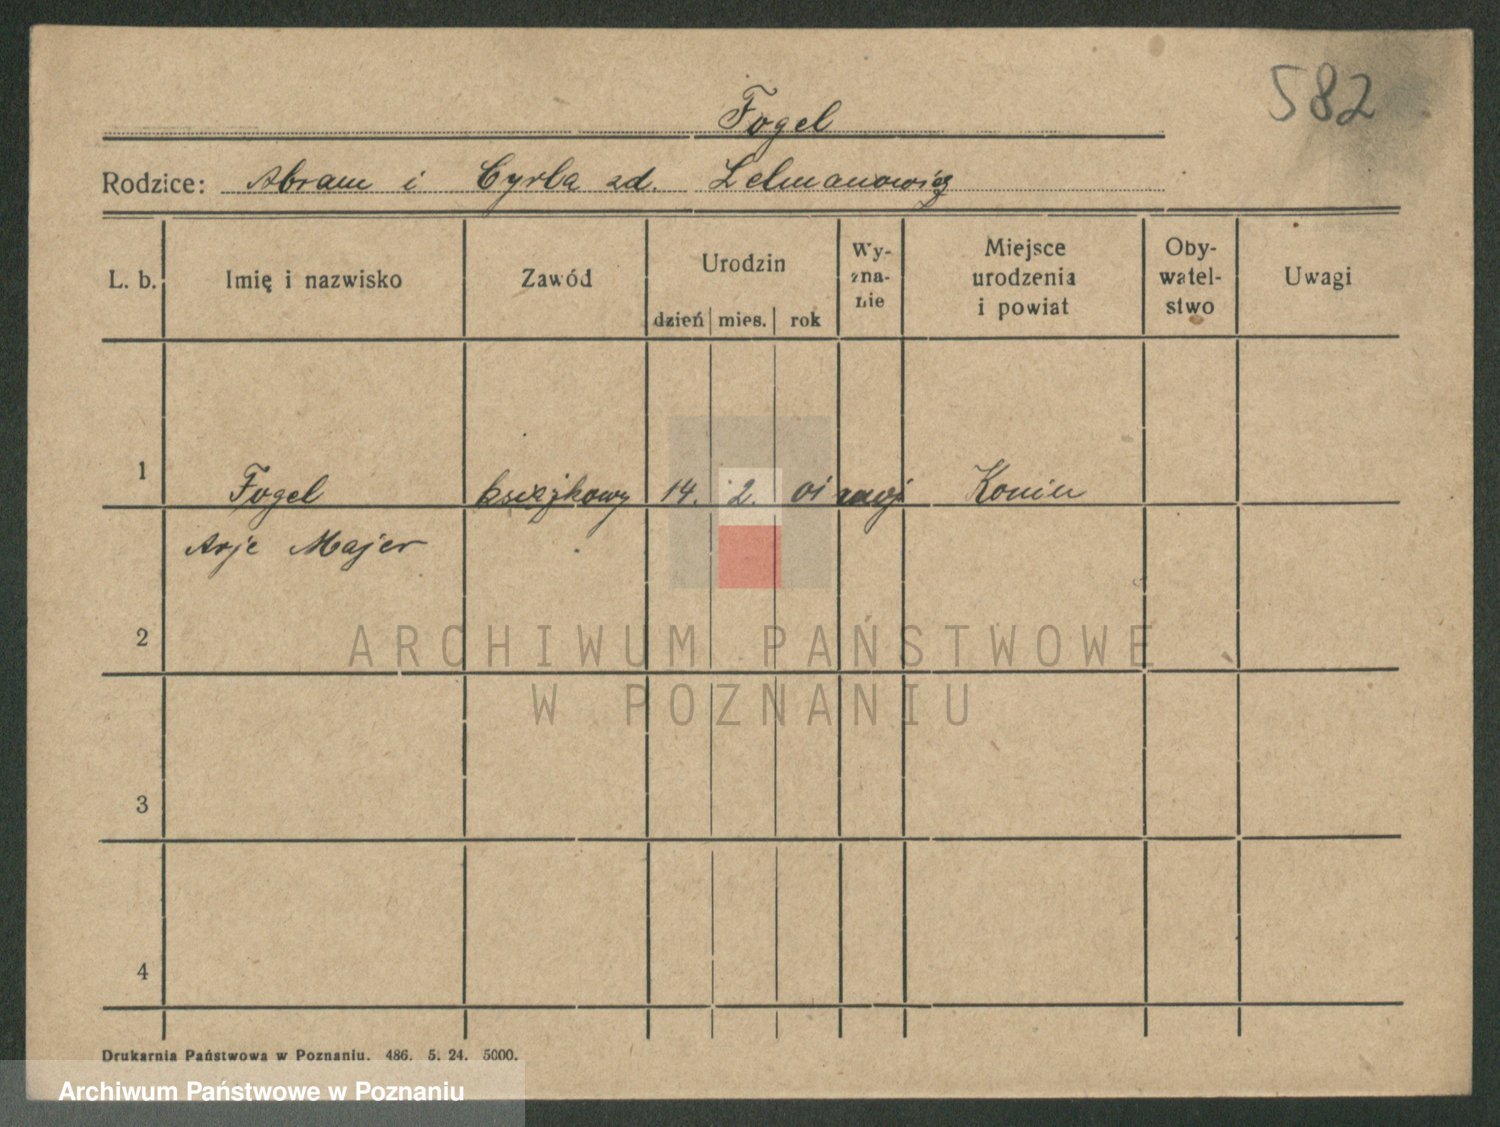 582
Fogel
Rodzice: Abram i Cyrla zd. Lelmanowicz
L. b. Imię i nazwisko Zawód Urodzin dzień mies. rok Wy-zna-nie Miejsce urodzenia i powiat Oby-watel-stwo Uwagi
1 Fogel 14. 2. 01 mojż Konin
Arje Majer
2
ARCHIWUM PAŃSTWOWE
W POZNANIU
3
4
Drukarnia Państwowa w Poznaniu. 486. 5. 24. 5000.
Archiwum Państwowe w Poznaniu